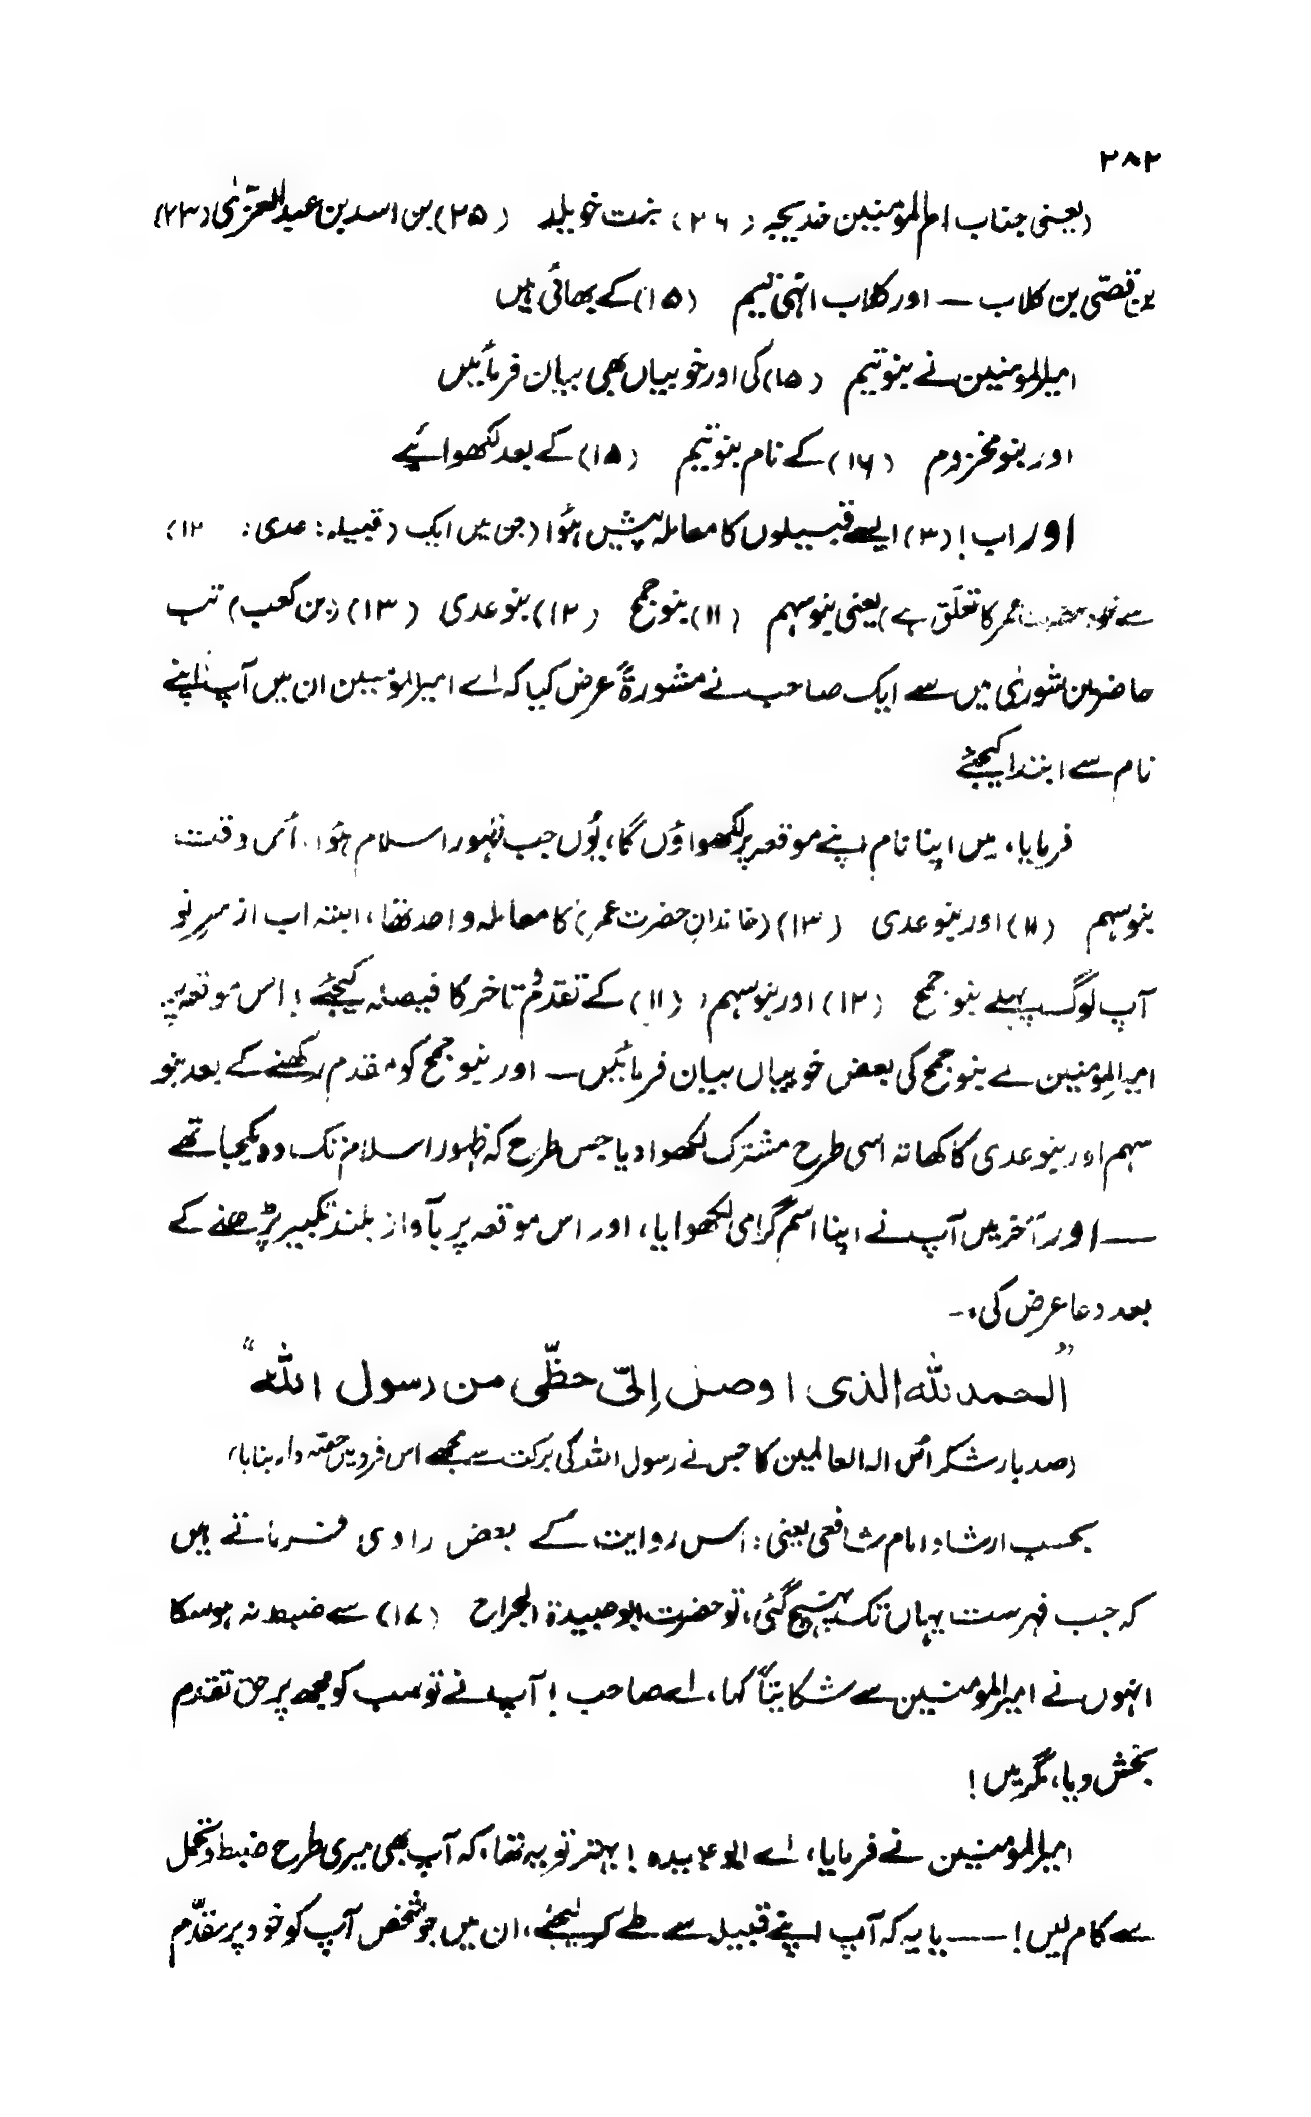 ۲۸۲
(یعنی جناب ام المومنین خدیجہ (۲۶) بنت خویلد (۲۵) بن اسد بن عبد العزّٰی (۲۳)
بن قصّی بن کلاب — اور کلاب انہی تیم (۱۵) کے بھائی ہیں
امیرالمومنین نے بنو تیم (۱۵) کی اور خوبیاں بھی بیان فرمائیں
اور بنو مخزوم (۱۶) کے نام بنو تیم (۱۵) کے بعد لکھوائیے
اور اب! (۳) ایسے قبیلوں کا معاملہ پیش ہؤا (جن میں ایک (قبیلہ: عدی: ۱۲)
سے خود حضرت عمر کا تعلّق ہے) یعنی بنو سہم (۱۱) بنو جمح (۱۲) بنو عدی (۱۳) (بن کعب) تب
حاضرین شورٰی میں سے ایک صاحب نے مشورۃً عرض کیا کہ اے امیرالمومنین ان میں آپ اپنے
نام سے ابتدا کیجئے
فرمایا، میں اپنا نام اپنے موقعہ پر لکھواؤں گا، یُوں جب ظہور اسلام ہؤا، اُس وقت
بنو سہم (۱۱) اور بنو عدی (۱۳) (خاندانِ حضرت عمر) کا معاملہ واحد تھا، البتہ اب از سرِ نو
آپ لوگ پہلے بنو جمح (۱۲) اور بنو سہم (۱۱) کے تقدم و تاخر کا فیصلہ کیجئے! اس موقعہ پر
امیرالمومنین نے بنو جمح کی بعض خوبیاں بیان فرمائیں — اور بنو جمح کو مقدم رکھنے کے بعد بنو
سہم اور بنو عدی کا کھاتہ اسی طرح مشترک لکھوا دیا جس طرح کہ ظہور اسلام تک وہ یکجا تھے
— اور آخر میں آپ نے اپنا اسم گرامی لکھوایا، اور اس موقعہ پر بآواز بلند تکبیر پڑھنے کے
بعد دعا عرض کی:-
"الحمد للّٰہ الذی اوصل اِلیّ حظّی من رسول اللّٰہ"
(صد بار شکر اُس الہ العالمین کا جس نے رسول اللہ کی برکت سے مجھے اس فرد میں حصّہ دار بنایا)
بحسب ارشاد امام شافعی یعنی: اس روایت کے بعض راوی فرماتے ہیں
کہ جب فہرست یہاں تک پہنچ گئی، تو حضرت ابو عبیدۃ الجراح (۱۷) سے ضبط نہ ہوسکا
انہوں نے امیرالمومنین سے شکایتاً کہا، اے صاحب! آپ نے تو سب کو مجھ پر حق تقدم
بخش دیا، مگر میں!
امیرالمومنین نے فرمایا، اے ابو عبیدہ! بہتر تو یہ تھا، کہ آپ بھی میری طرح ضبط و تحمل
سے کام لیں! — یا یہ کہ آپ اپنے قبیلہ سے طے کر لیجئے، ان میں جو شخص آپ کو خود پر مقدّم